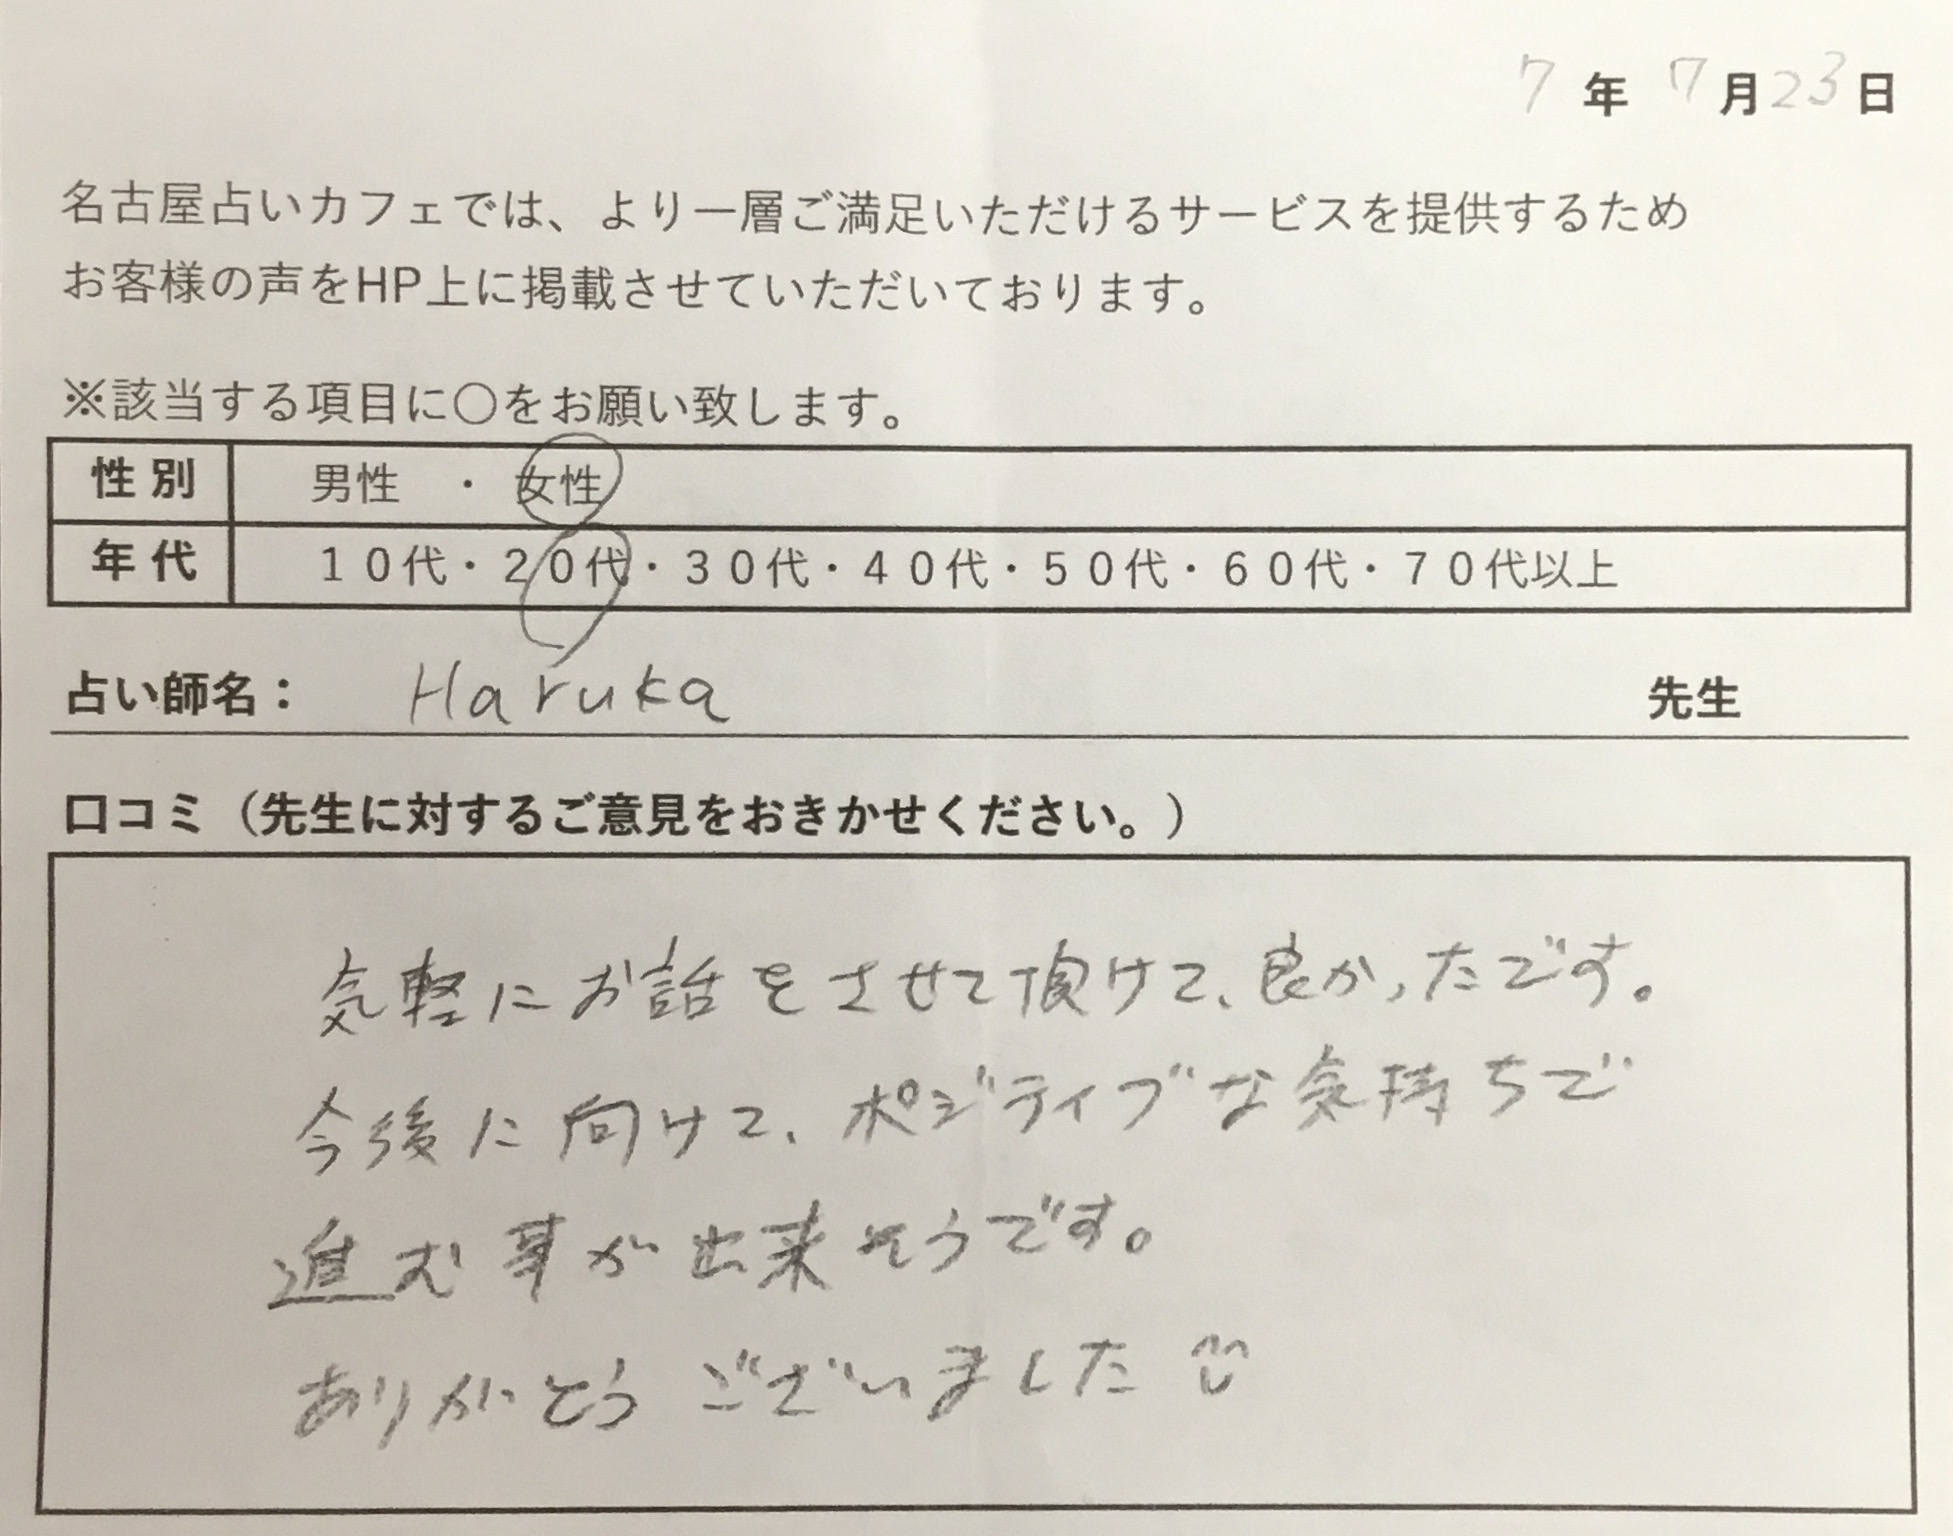 7年 7月23日
名古屋占いカフェでは、より一層ご満足いただけるサービスを提供するため
お客様の声をHP上に掲載させていただいております。
※該当する項目に〇をお願い致します。
性別 男性 ・ 女性
年代 １０代・２０代・３０代・４０代・５０代・６０代・７０代以上
占い師名： Haruka 先生
口コミ（先生に対するご意見をおきかせください。）
気軽にお話をさせて頂けて、良かったです。
今後に向けて、ポジティブな気持ちで
進む事が出来そうです。
ありがとうございました